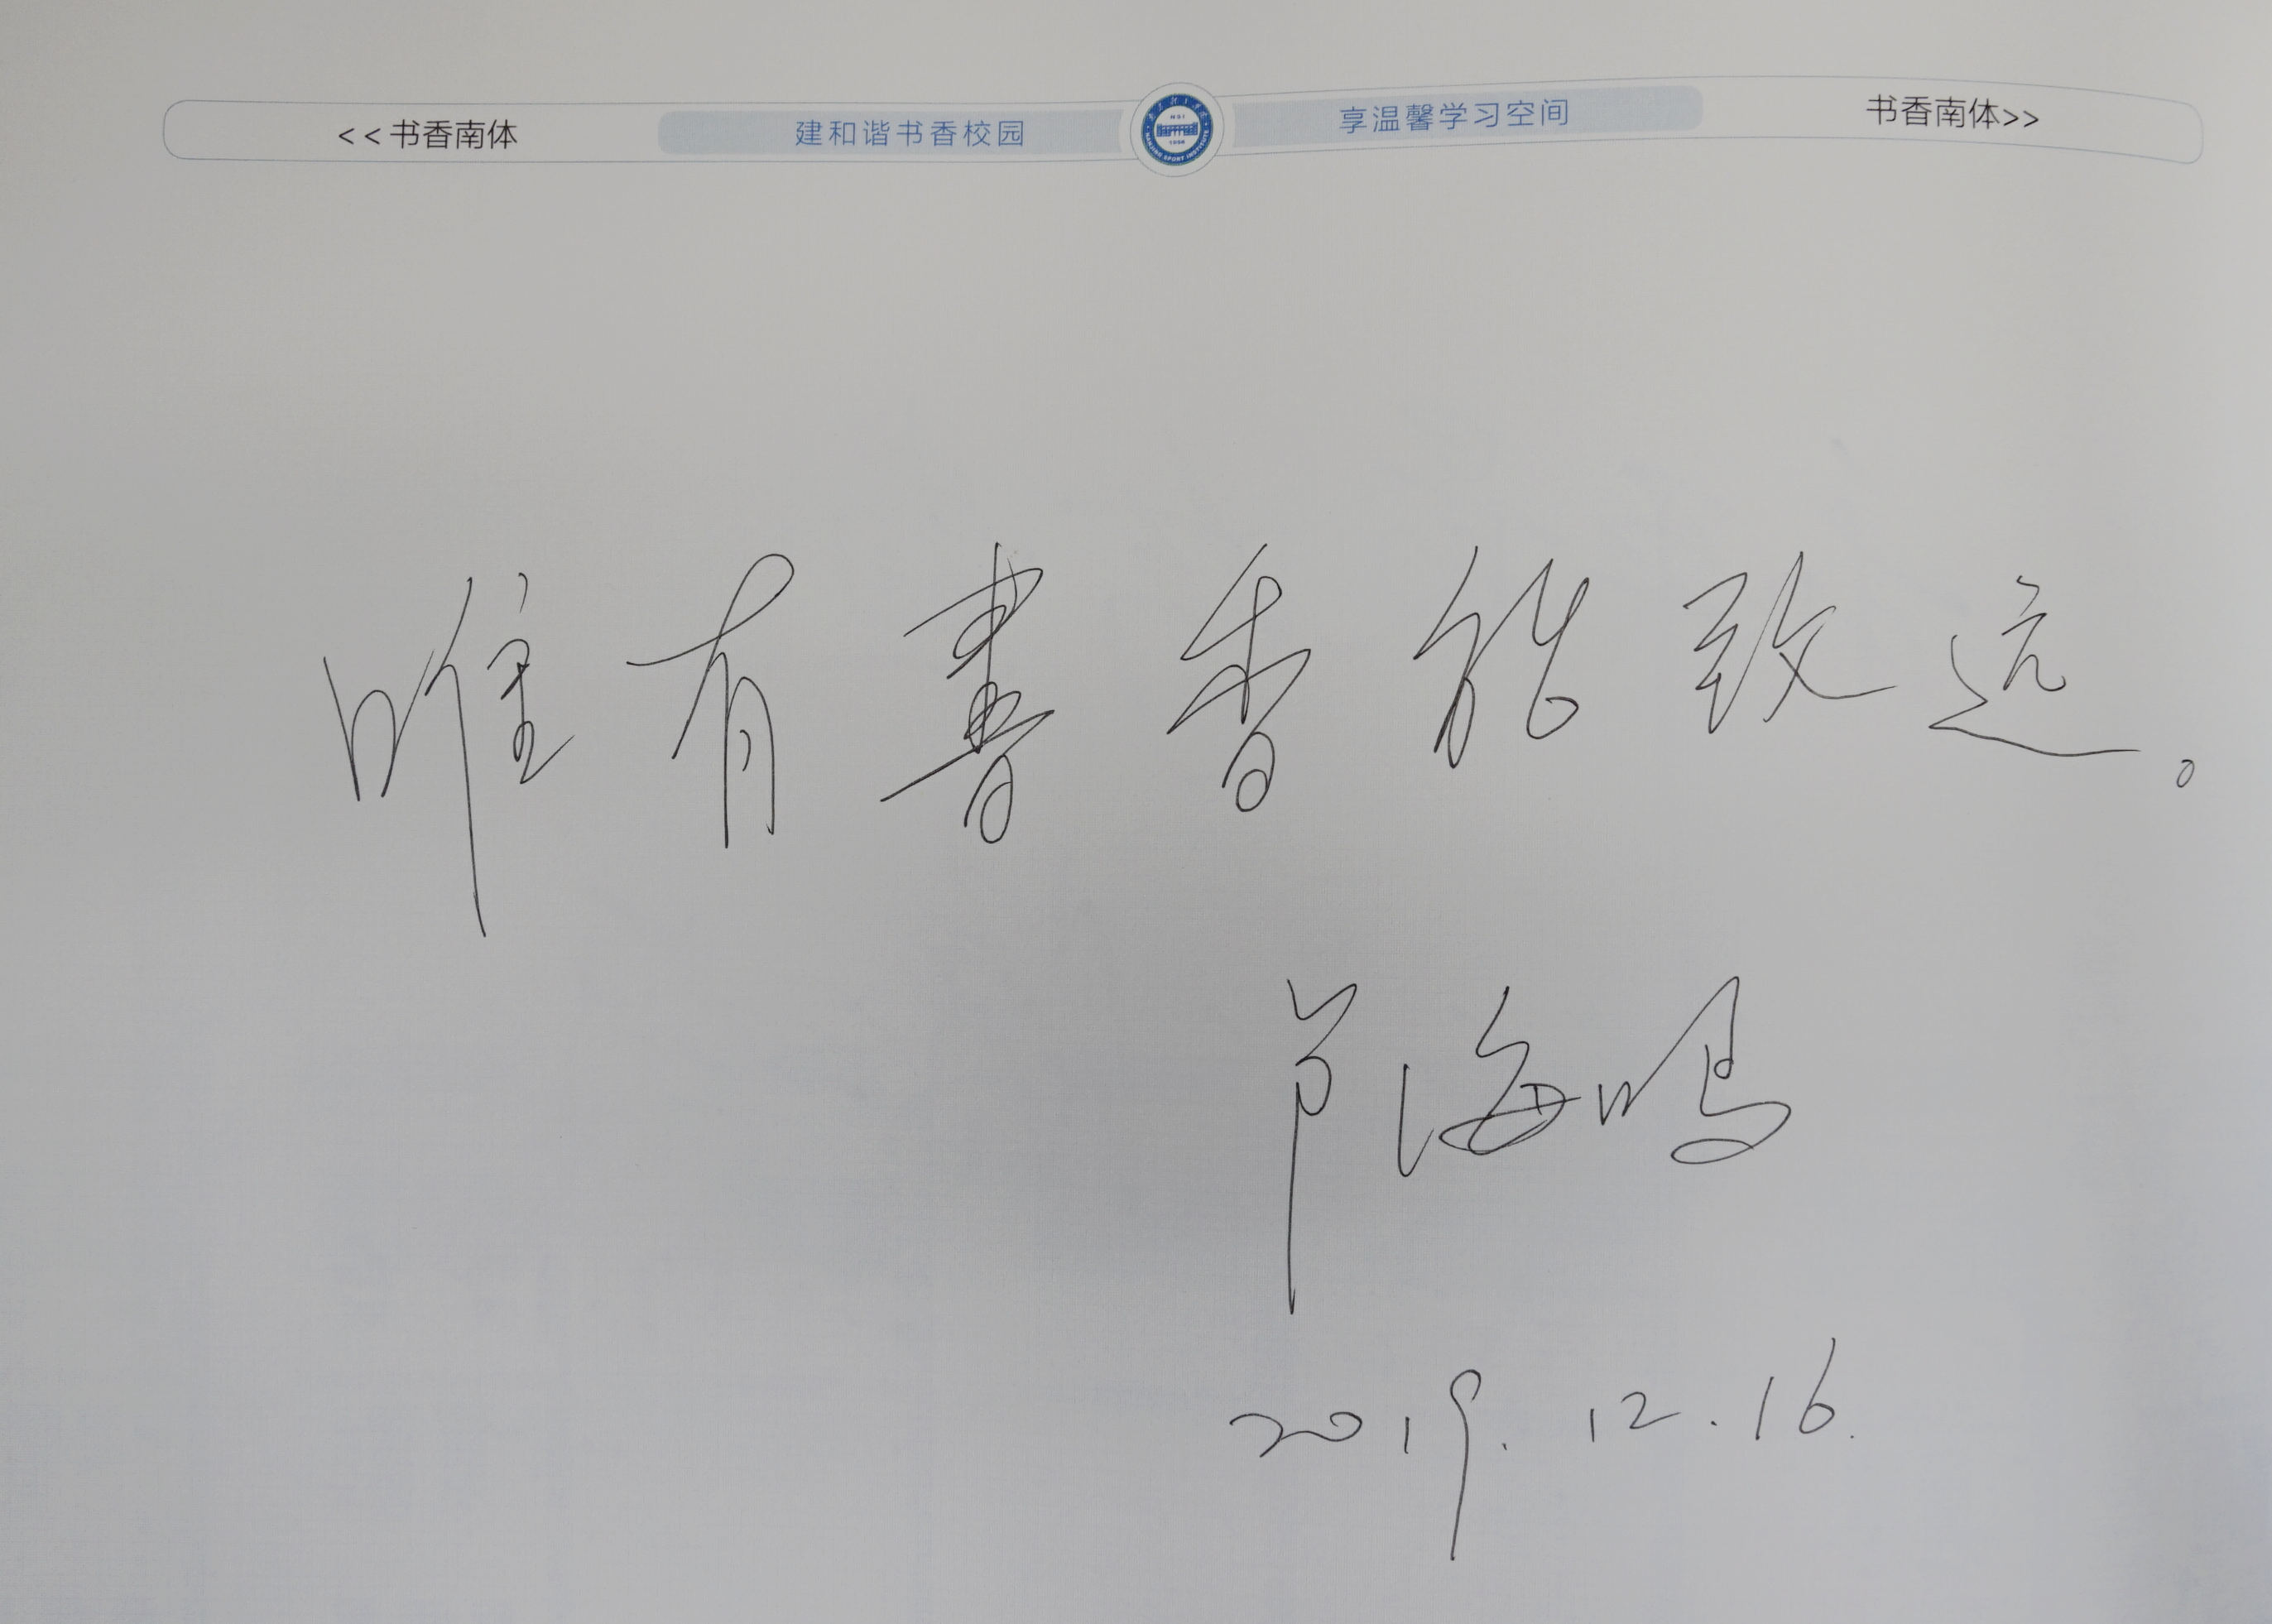 <<书香南体 建和谐书香校园 享温馨学习空间 书香南体>>
唯有書香能致远。
芦海鸣
2019.12.16.